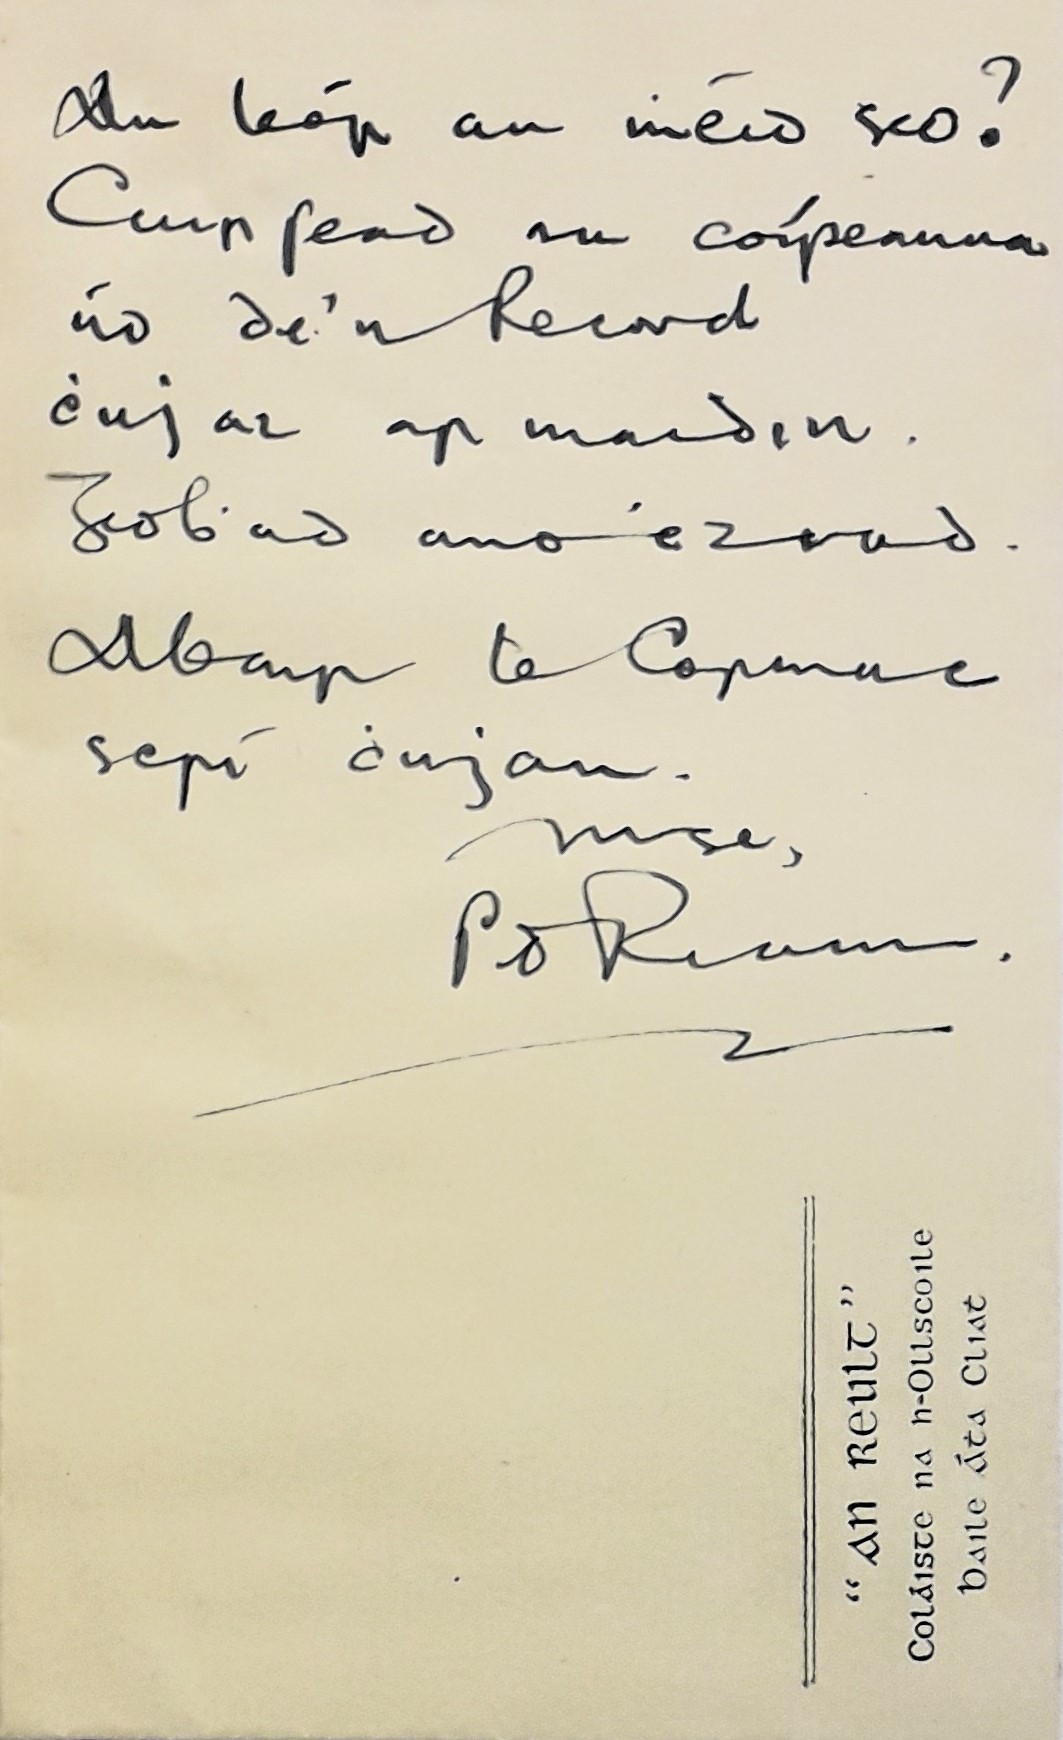 An leór an ṁéid seo?
Cuirfead na cóipeanna
úd de'n Record
ċugat ar maidin.
Geoḃad
Abair le Cormac
scrí ċugam.
Mise,
P Ó Riain.
"An Reult"
Coláiste na h-Ollscoile
Baile Áṫa Cliaṫ